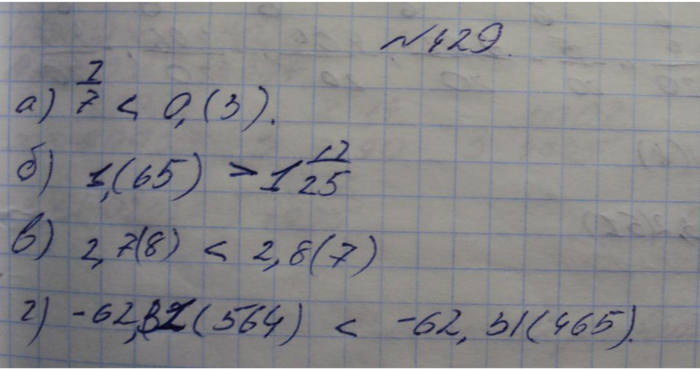 №429.
а) 2/7 < 0,(3).
б) 1,(65) > 1 12/25
в) 2,7(8) < 2,8(7)
г) -62,(564) < -62,31(465).